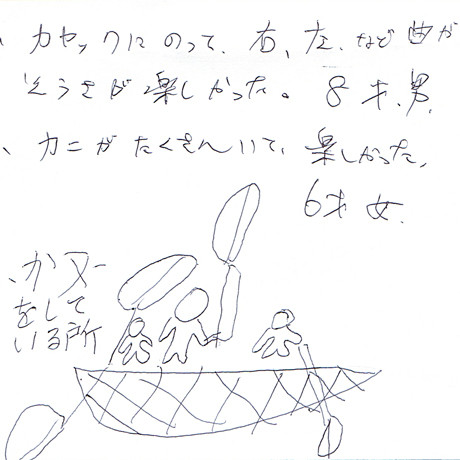 、カヤックにのって、右、左、など曲が
そうさが楽しかった。 8才、男、
、カニがたくさんいて、楽しかった、
6才 女、
、かヌー
をして
いる所